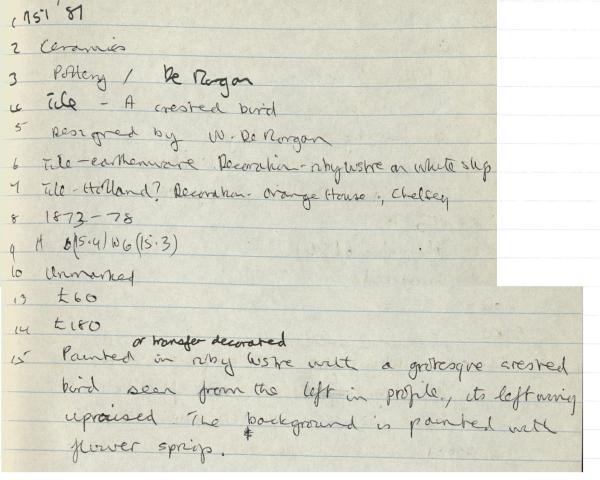 1 751 '81
2 Ceramics
3 Pottery / De Morgan
4 Tile - A crested bird
5 Designed by W. De Morgan
6 Tile - earthenware Decoration - ruby lustre on white slip
7 Tile - Holland? Decoration - Orange House, Chelsey
8 1873 - 78
9 H 6(15.4) W 6(15.3)
10 Unmarked
13 £60
14 £180
or transfer decorated
15 Painted in ruby lustre with a grotesque crested
bird seen from the left in profile, its left wing
upraised. The background is painted with
*
flower sprigs.